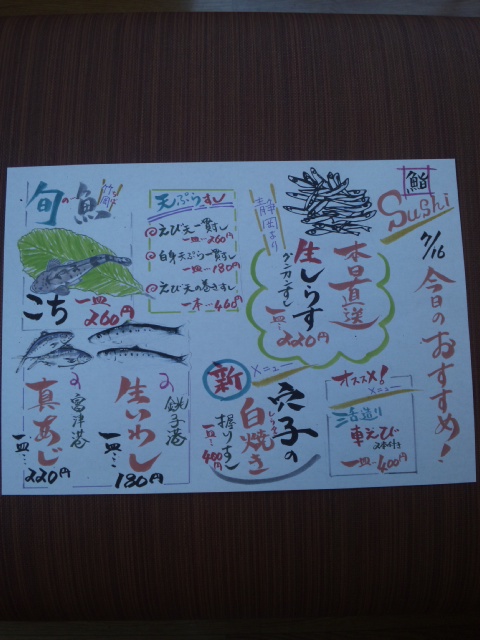 鮨
Sushi
7/16
今日のおすすめ!
静岡より
本日直送
生しらす
グンカンずし
一皿…220円
オススメ!
メニュー
活造り
車えび
2本付き
一皿…400円
新
メニュー
穴子の
白焼き
しらやき
握りずし
一皿…400円
天ぷらずし
えび天一貫ずし
一皿…260円
白身天ぷら一貫ずし
一皿…180円
えび天の巻きずし
一本…460円
旬の魚
竹岡
こち
一皿…260円
銚子港の
生いわし
一皿…180円
富津港の
真あじ
一皿…220円